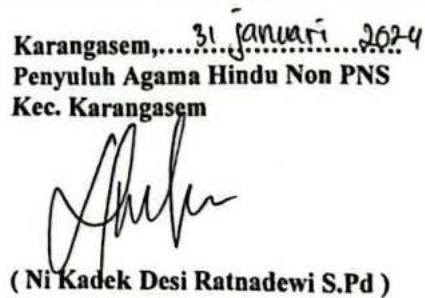 Karangasem,.....31 januari 2024
Penyuluh Agama Hindu Non PNS
Kec. Karangasem
( Ni Kadek Desi Ratnadewi S.Pd )